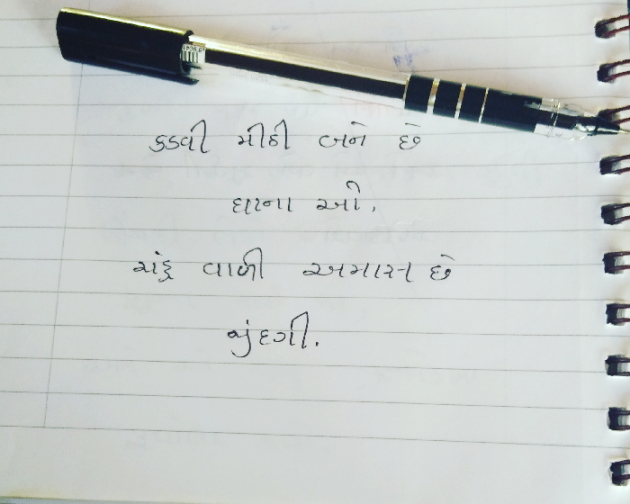 કડવી મીઠી બને છે
ઘટના ઓ.
ચંદ્ર વાળી અમાસ છે
જીંદગી.